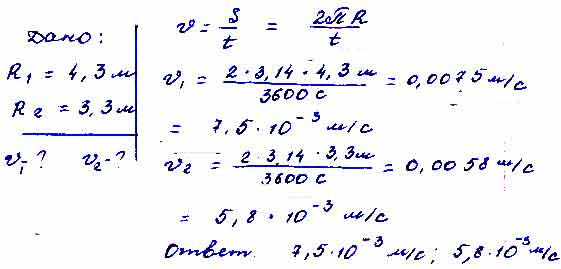 Дано:
R₁ = 4,3 м
R₂ = 3,3 м
v₁-? v₂-?
v = S/t = 2πR/t
v₁ = 2·3,14·4,3 м/3600 с = 0,0075 м/с
= 7,5·10⁻³ м/с
v₂ = 2·3,14·3,3 м/3600 с = 0,0058 м/с
= 5,8·10⁻³ м/с
Ответ. 7,5·10⁻³ м/с; 5,8·10⁻³ м/с